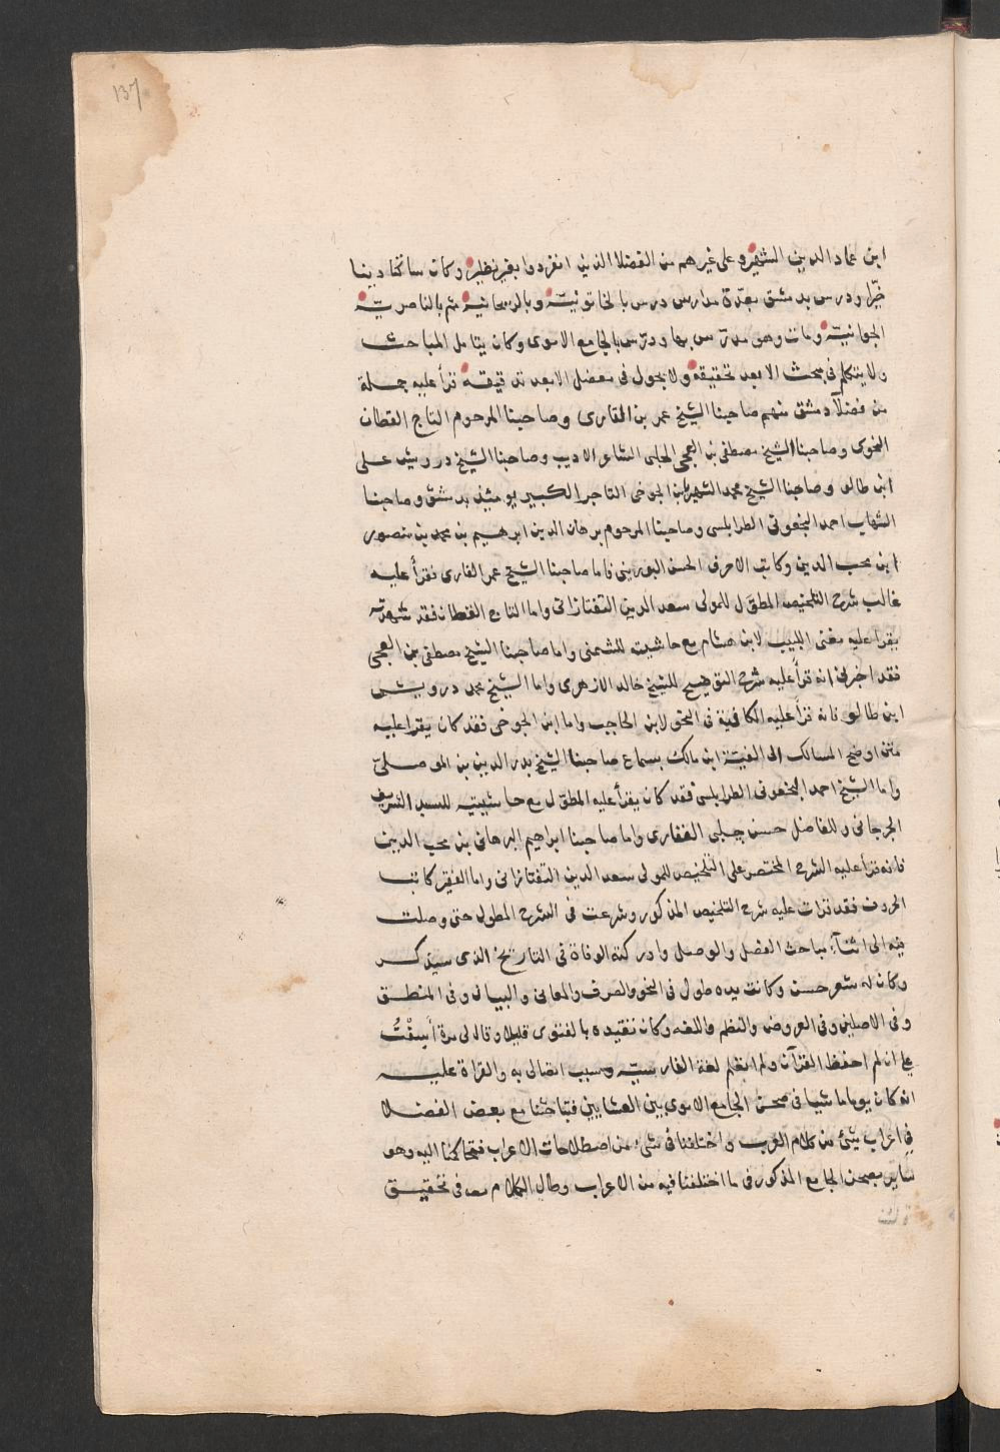 137
ابن عماد الدين الشهيره وعلى غيرهم من الفضلا الذين انفردوا بغير نظير وكان ساكنا دينا
خيّرا ودرس بدمشق بعدّة مدارس درس بالخاتونيّة وبالريحانية ثم بالناصريّة
الجوانيّة ومات وهو مدرّس بها ودرّس بالجامع الاموى وكان يتامل المباحث
ولا يتكلم فى مبحث الا بعد تحقيقه ولا يجول فى معضل الا بعد تدقيقه قرأ عليه جملة
من فضلآء دمشق منهم صاحبنا الشيخ عمر بن القارى وصاحبنا المرحوم التاج القطان
النحوى وصاحبنا الشيخ مصطفى بن العجمى الحلبى الشاعر الاديب وصاحبنا الشيخ درويش على
ابن طالو وصاحبنا الشيخ محمد الشهير بابن الجوخى التاجر الكبير يومئذ بدمشق وصاحبنا
الشهاب احمد الطرابلسى وصاحبنا المرحوم برهان الدين ابرهيم بن محمد بن منصور
ابن محب الدين وكاتب الاحرف الحسن البورينى فاما صاحبنا الشيخ عمر القارى فقرأ عليه
غالب شرح التلخيص المطوّل للمولى سعد الدين التفتازانى واما التاج القطان فقد شهدته
يقرا عليه مغنى اللبيب لابن هشام مع حاشيته للشمنى واما صاحبنا الشيخ مصطفى بن العجمى
فقد اخبرنى انه قرأ عليه شرح التوضيح للشيخ خالد الازهرى واما الشيخ محمد درويش
ابن طالو فانه قرأ عليه الكافية فى النحو لابن الحاجب واما ابن الجوخى فقد كان يقرا عليه
متن اوضح المسالك الى الفيّة ابن مالك بسماع صاحبنا الشيخ بدر الدين بن الموصلىّ
واما الشيخ احمد الطرابلسى فقد كان يقرأ عليه المطوّل مع حاشيتيه للسيد الشريف
الجرجانى وللفاضل حسن چلبى الفنارى واما صاحبنا ابراهيم البرهانى بن محب الدين
فانه قرأ عليه الشرح المختصر على التلخيص للمولى سعد الدين التفتازانى واما الفقير كاتب
الحروف فقد قرات عليه شرح التلخيص المذكور وشرعت فى الشرح المطول حتى وصلت
فيه الى اثنآء مباحث الفصل والوصل وادركته الوفاة فى التاريخ الذى سيذكر
وكان له شعر حسن وكانت يده طولى فى النحو والصرف والمعانى والبيان وفى المنطق
وفى الاصلين وفى العروض والنظم واللغه وكان تقيده بالفتوى قليلا وقال لى مرة أسِفْتُ
على ان لم احفظ القرآن ولم اتعلم لغة الفارسيّة وسبب اتصالى به والقراة عليه
انه كان يوما ماشيا فى صحن الجامع الاموى بين العشايين فتباحثنا مع بعض الفضلا
فى اعراب شئ من كلام العرب واختلفنا فى شئ من اصطلاحات الاعراب فتحاكمنا اليه وهو
ساير بصحن الجامع المذكور فى ما اختلفنا فيه من الاعراب وطال الكلام معه فى تحقيق